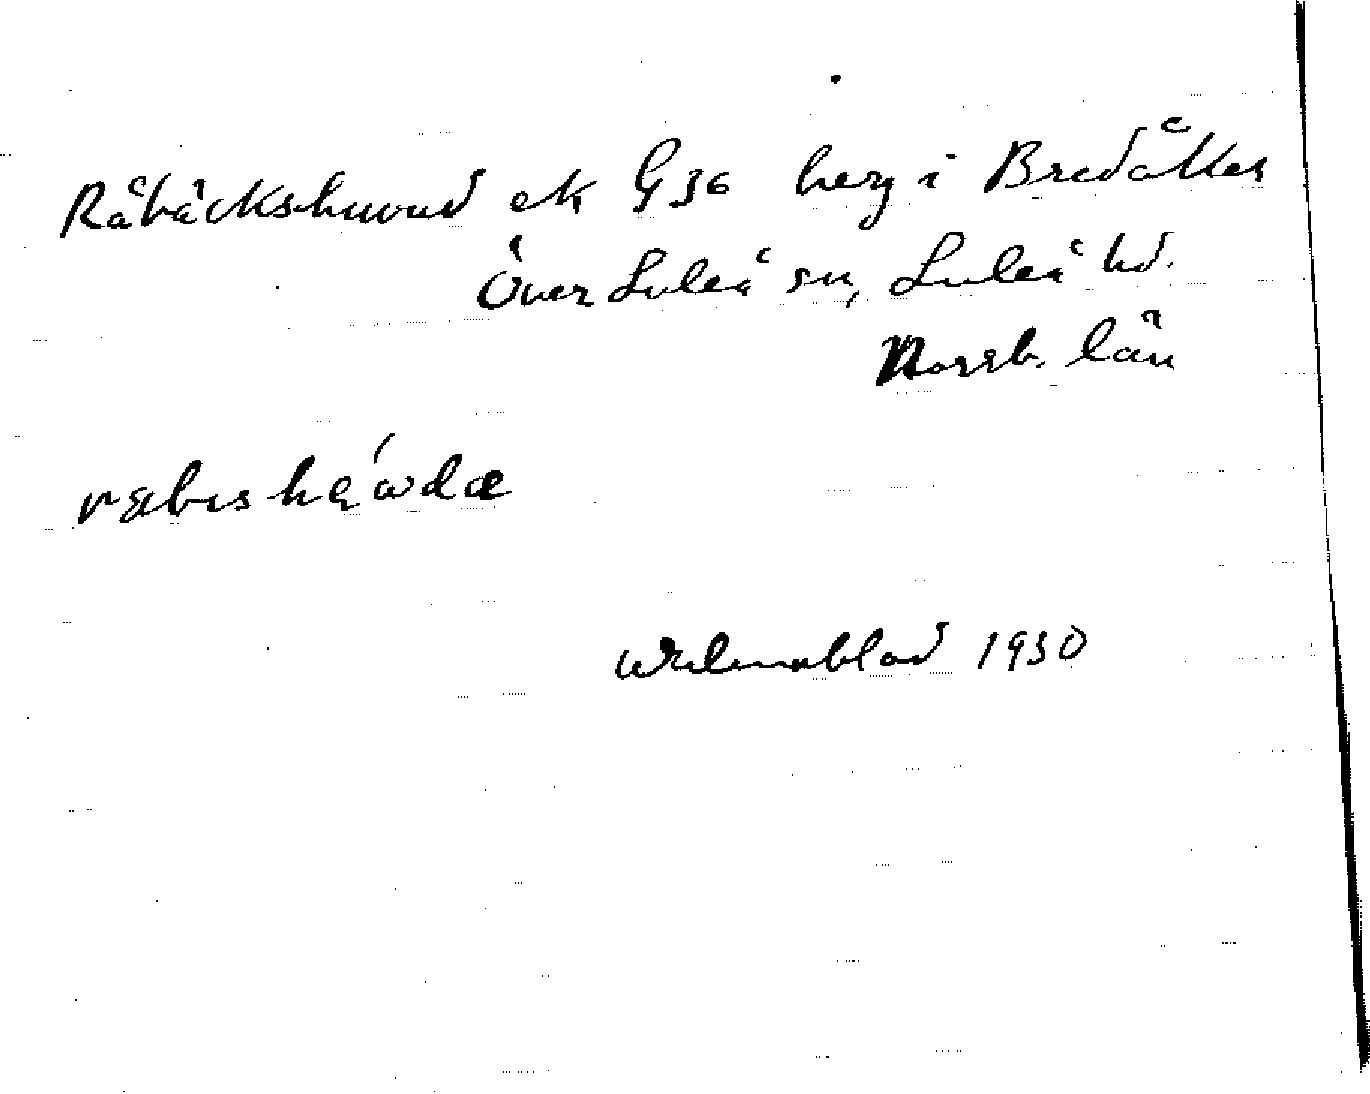 Råbäckshuvud ek G36 berg i Bredåker
Över Luleå sn, Luleå hd.
Norrb. län
Wilenblad 1930